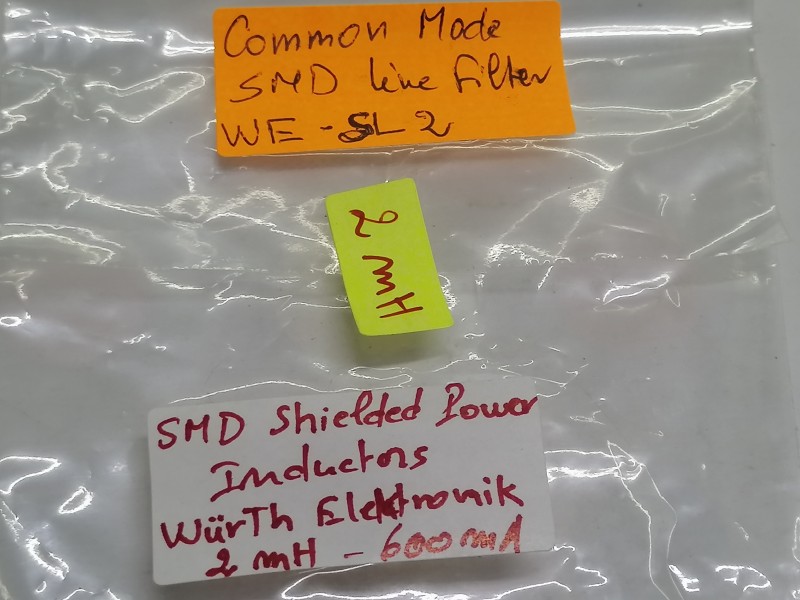 Common Mode
SMD line Filter
WE-SL2
2 mH
SMD Shielded Power
Inductors
WürTh Elektronik
2 mH - 600 mA